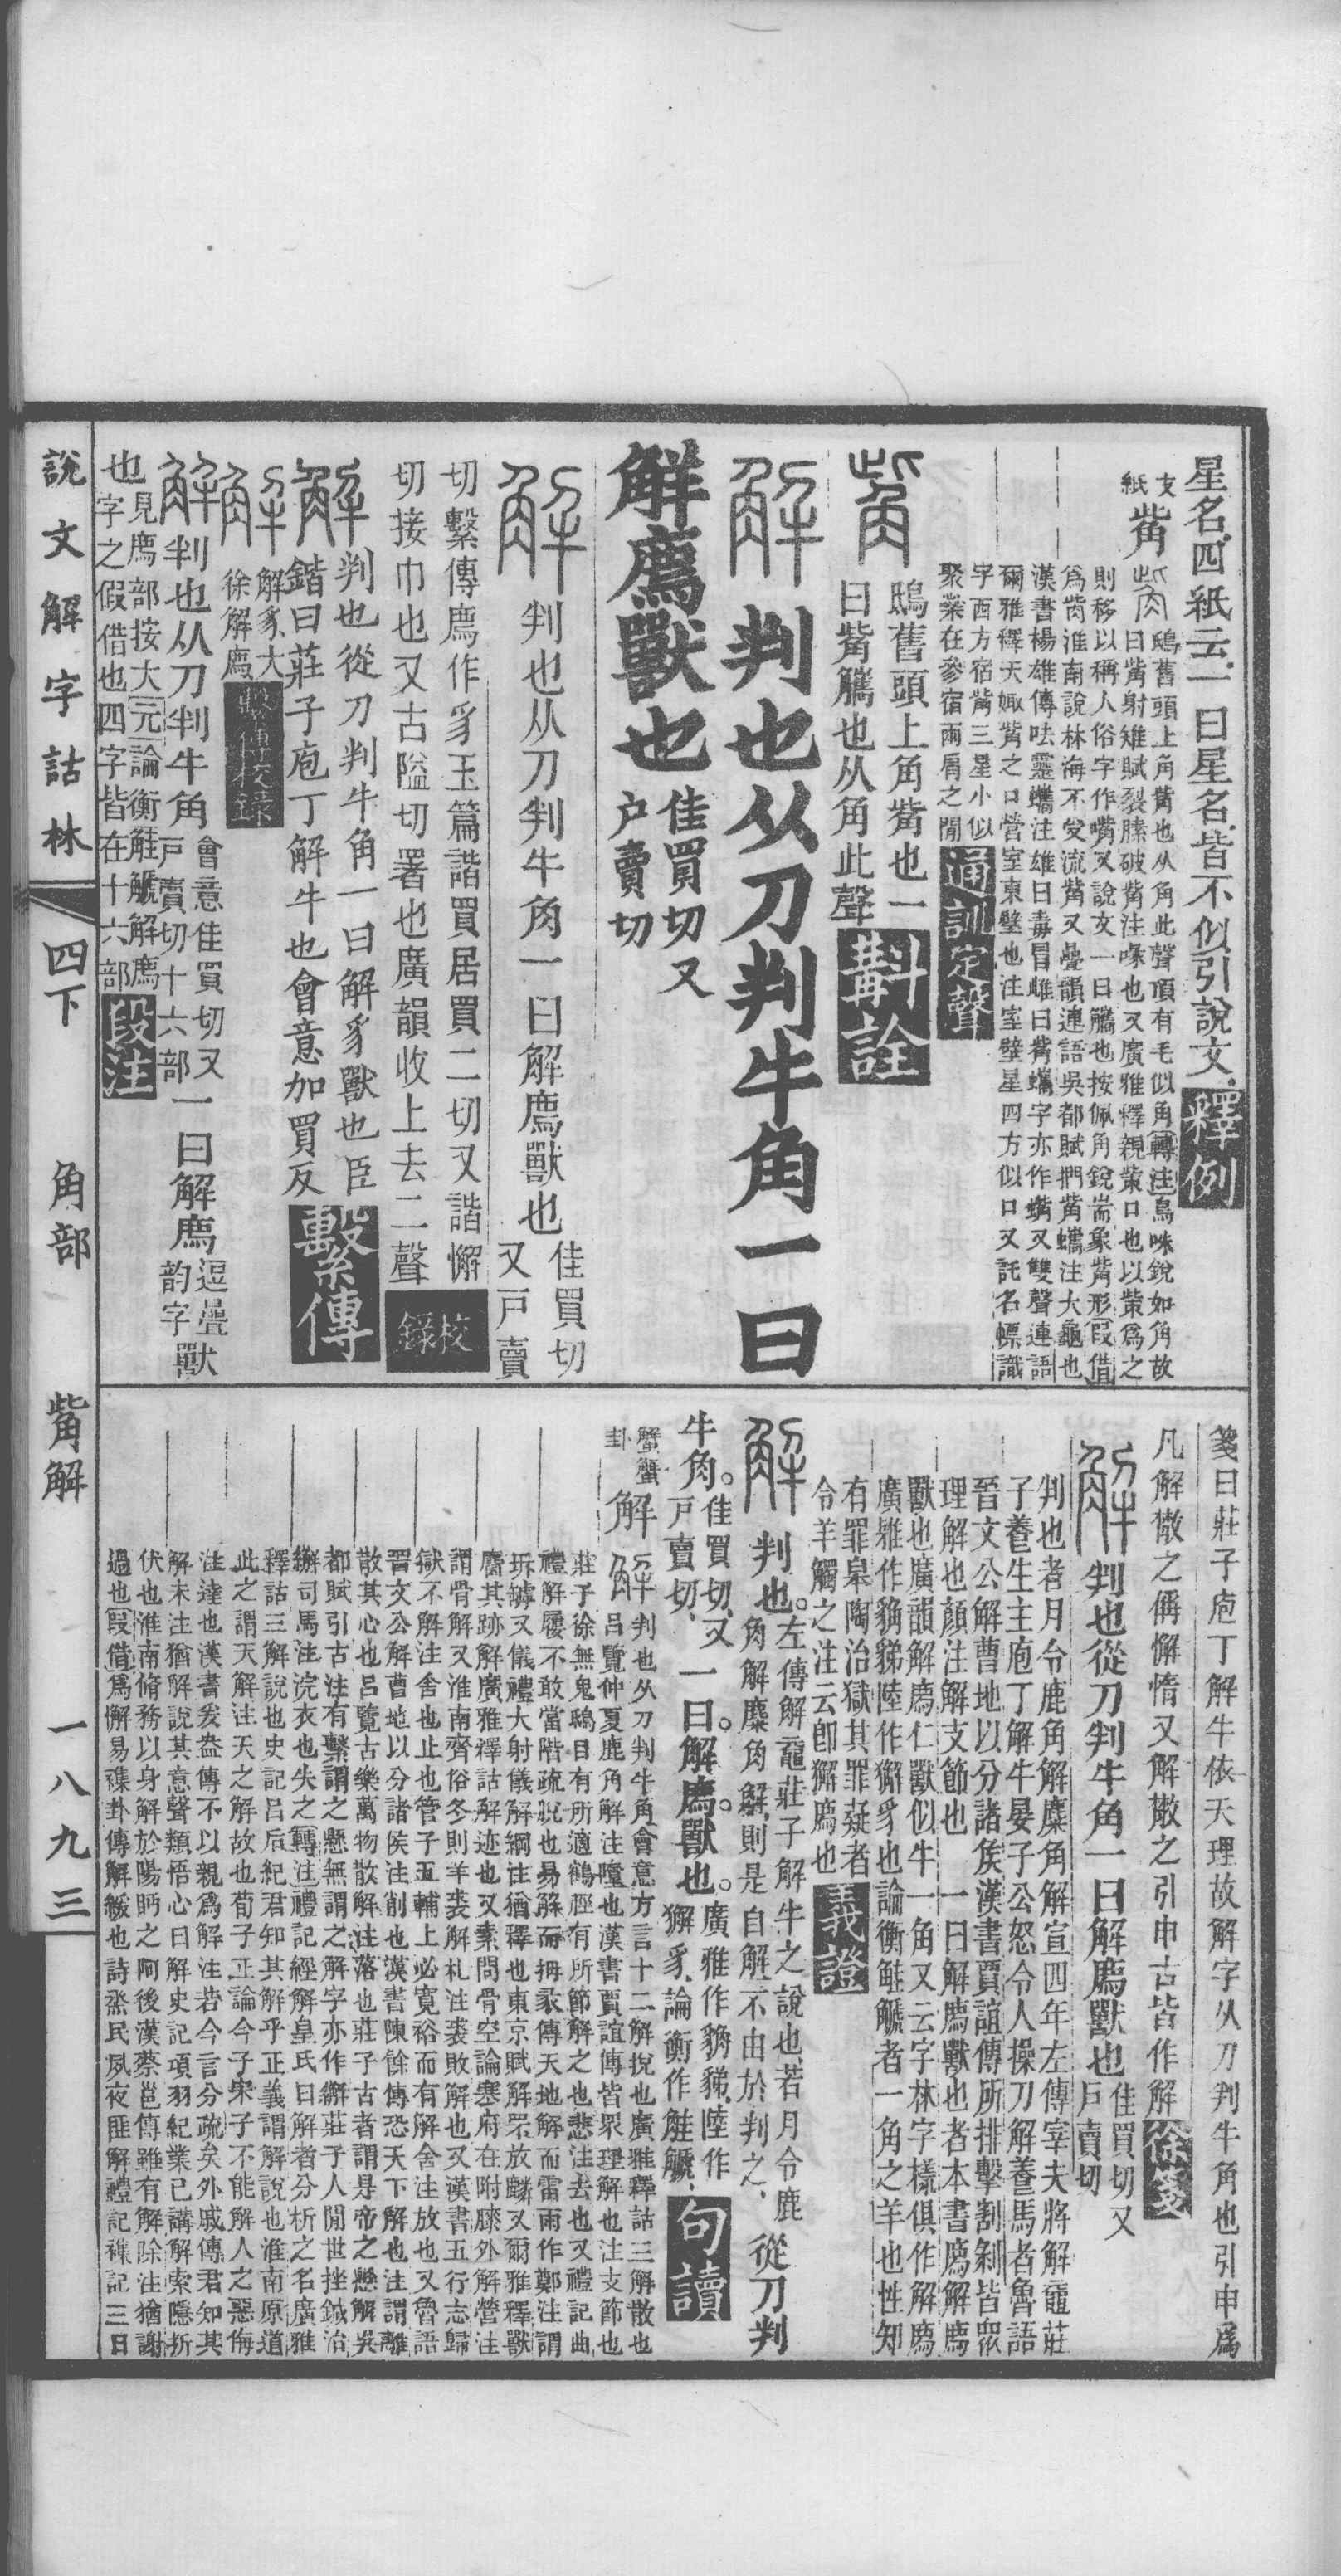 星名四紙云一曰星名皆不似引說文釋例
支紙
觜
鴟舊頭上角觜也从角此聲頂有毛似角轉注鳥咮銳如角故
曰觜射雉賦裂膆破觜注喙也又廣雅釋親策口也以策爲之
則移以稱人俗字作嘴又說文一曰觿也按佩角銳耑象觜形假借
爲𦙶淮南說林海不受流觜又疊韻連語吳都賦捫觜蠵注大龜也
漢書楊雄傳呿靈蠵注雄曰毒冒雌曰觜蠵字亦作蠵又雙聲連語
爾雅釋天娵觜之口營室東壁也注室壁星四方似口又託名幖識
字西方宿觜三星小似
聚業在參宿兩肩之閒通訓定聲
觜
鴟舊頭上角觜也一
曰觜觿也从角此聲斠詮
解判也从刀判牛角一曰
解廌獸也
佳買切又
户賣切
解
判也从刀判牛角一曰解廌獸也
佳買切
又戸賣
切繫傳廌作豸玉篇諧買居買二切又諧懈
切接巾也又古隘切署也廣韻收上去二聲校錄
解
判也從刀判牛角一曰解豸獸也臣
鍇曰莊子庖丁解牛也會意加買反繫傳
解
解豸大
徐解廌繫傳校錄
解判也从刀判牛角
會意佳買切又
戸賣切十六部
一曰解廌
逗疊
韵字
獸
也
見廌部按大元論衡觟𧣾解廌
字之假借也四字皆在十六部段注
箋曰莊子庖丁解牛依天理故解字从刀判牛角也引申爲
凡解散之偁懈惰又解散之引申古皆作解徐箋
解
判也從刀判牛角一曰解廌獸也
佳買切又
戸賣切
判也者月令鹿角解麋角解宣四年左傳宰夫將解黿莊
子養生主庖丁解牛晏子公怒令人操刀解養馬者魯語
晉文公解曹地以分諸侯漢書賈誼傳所排擊割剝皆衆
理解也顏注解支節也一曰解廌獸也者本書廌解廌
獸也廣韻解廌仁獸似牛一角又云字林字樣俱作解廌
廣雅作獬𧳋陸作獬豸也論衡觟𧣾者一角之羊也性知
有罪皋陶治獄其罪疑者
令羊觸之注云卽獬廌也義證
解
判也
左傳解黿莊子解牛之說也若月令鹿
角解麋角解則是自解不由於判之
從刀判
牛角
佳買切又
戸賣切
一曰解廌獸也
廣雅作𧳊𧳋陸作
獬豸論衡作觟𧣾
句讀
蟹蟹
卦
解
判也从刀判牛角會意方言十二解捝也廣雅釋詁三解散也
呂覽仲夏鹿角解注墮也漢書賈誼傳皆衆理解也注支節也
莊子徐無鬼鴟目有所適鶴脛有所節解之也悲注去也又禮記曲
禮解屨不敢當階疏脫也易解而拇彖傳天地解而雷雨作鄭注謂
坼罅又儀禮大射儀解綱注猶釋也東京賦解罘放麟又爾雅釋獸
麕其跡解廣雅釋詁解迹也又素問骨空論寒府在附膝外解營注
謂骨解又淮南齊俗冬則羊裘解札注裘敗解也又漢書五行志歸
獄不解注舍也止也管子五輔上必寬裕而有解舍注放也又魯語
晉文公解曹地以分諸侯注削也漢書陳餘傳恐天下解也注謂離
散其心也呂覽古樂萬物散解注落也莊子古者謂是帝之懸解吳
都賦引古注有繫謂之懸無謂之解字亦作繲莊子人閒世挫鍼治
繲司馬注浣衣也失之轉注禮記經解皇氏曰解者分析之名廣雅
釋詁三解說也史記呂后紀君知其解乎正義謂解說也淮南原道
此之謂天解注天之解故也荀子正論今子宋子不能解人之惡侮
注達也漢書爰盎傳不以親爲解注若今言分疏矣外戚傳君知其
解未注猶解說其意聲類悟心曰解史記項羽紀業已講解索隱折
伏也淮南脩務以身解於陽眄之阿後漢蔡邕傳雖有解除注猶謝
過也假借爲懈易襍卦傳解緩也詩烝民夙夜匪解禮記襍記三日
說文解字詁林 四下 角部 觜解 一八九三